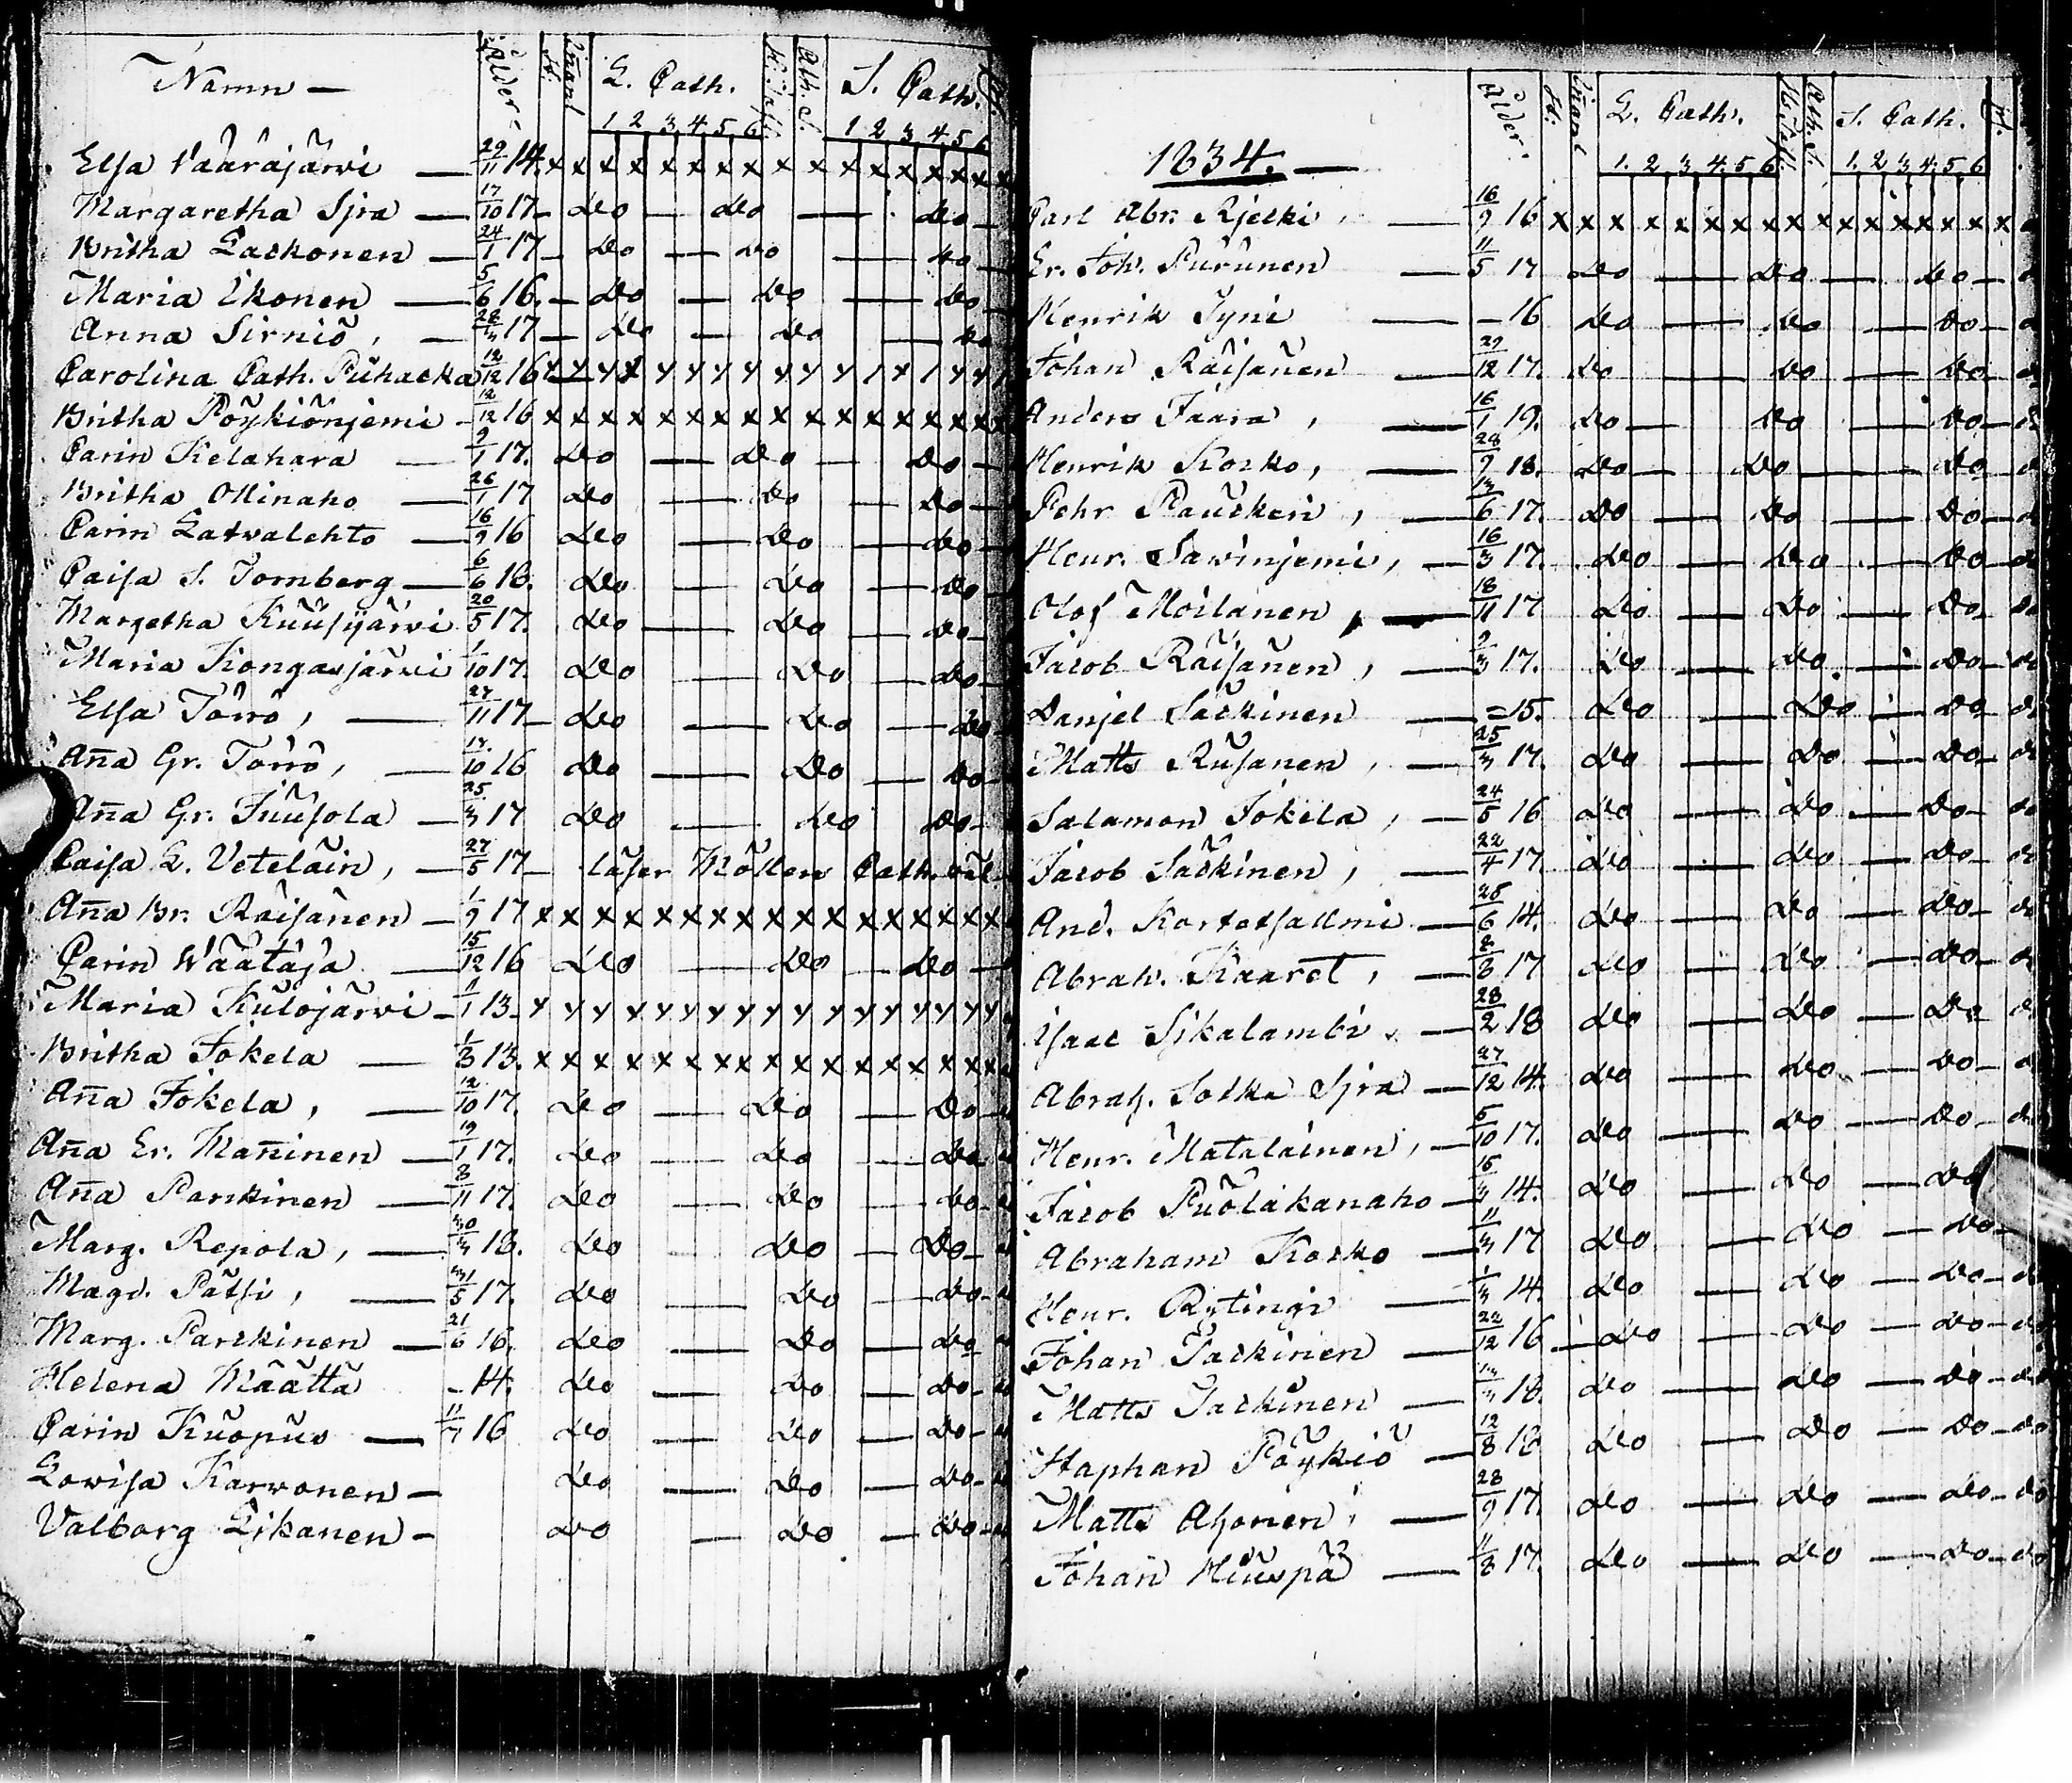 Namn — Ålder. Jnant L. Cath. S. Cath.
1 2 3 4 5 6 1 2 3 4 5 6
Elsa Vaarajärvi — 29/11 14. x x x x x x x x x x x x x x x x
Margaretha Sjra — 17/10 17 — do — do — do —
Britha Lackonen — 24/1 17 — do — do — do —
Maria Ikonen — 5/6 16. — do — do — do
Anna Sirniö, — 28/3 17 — do — do — do
Carolina Cath. Puhacka 12/12 16 x x y x y y y y y y y / x / y y
Britha Pöykiönjemi — 12/12 16 x x x x x x x x x x x x x x x x
Carin Kelahara — 9/1 17. do — do — do —
Britha Ollinaho — 26/1 17 do — do — do —
Carin Latvalehto — 16/9 16 do — do — do —
Caisa S. Tornberg — 6/6 16. do — do — do —
Margetha Kuusijärvi 20/5 17. do — do — do —
Maria Kongasjärvi 1/10 17. do — do — do —
Elsa Törrö, — 27/11 17 — do — do — do
Aña Gr. Törrö, — 17/10 16 do — do — do —
Aña Gr. Juusola — 25/3 17 do — do do —
Caisa L. Veteläin, — 27/5 17 — läser Möllers Cath. väl
Aña Br. Räisänen — 1/9 17 x x x x x x x x x x x x x x x x
Carin Wäätäjä — 15/12 16 do — do — do —
Maria Kulojärvi — 9/1 13 — y y y y y y y y y y y y y y y y
Britha Jokela — 1/3 13. x x x x x x x x x x x x x x x x
Aña Jokela, — 12/10 17. do — do — do —
Aña Er. Mañinen — 19/1 17. do — do — do
Aña Parskinen — 8/11 17. do — do — do —
Marg. Repola, — 30/3 18. do do — do —
Magd. Pätsi, — 31/5 17. do — do — do —
Marg. Parskinen — 21/6 16. do — do — do
Helena Määttä — 14. do — do — do —
Carin Kuopus — 11/7 16 do — do — do —
Lovisa Karvonen — do — do — do —
Valborg Likanen — do — do — do —
Ålder. Jnant L. Cath. S. Cath.
1. 2 3 4. 5 6 1. 2 3 4. 5 6
1834. —
Carl Abr. Rjecki, — 16/9 16 x x x x x x x x x x x x x x x x
Er. Joh. Purunen — 11/5 17 do — do — do —
Henrik Tyni — — 16 do — do — do —
Johan Räisänen — 29/12 17. do do — do
Anders Jaara, — 16/1 19. do — do — do —
Henrik Korko, — 28/9 18. do — do — do
Pehr Rautken, — 13/6 17. do — do — do —
Henr. Savinjemi, — 16/3 17. do — do — do —
Olof Moilanen, — 18/11 17 do — do — do
Jacob Räisänen, — 2/3 17. do — do — do —
Danjel Säckinen — 15. do — do — do —
Matts Rusanen, — 25/3 17. do — do — do —
Salamon Jokela, — 24/5 16 do — do — do —
Jacob Säckinen, — 22/4 17. do — do — do —
And. Kortetsallmi — 28/6 14. do — do — do —
Abrah. Kaaret, — 8/8 17 do — do — do —
Isaac Sjkalambi — 28/2 18 do — do — do —
Abrah. Sotka Sjra — 27/12 14. do — do — do —
Henr. Matalainen, — 5/10 17. do — do — do —
Jacob Puolakanaho — 15/3 14. do — do — do
Abraham Korko — 11/3 17 do — do — do —
Henr. Rytingi — 1/3 14. do — do — do —
Johan Tackinen — 22/12 16 — do — do — do —
Matts Tackinen — 13/3 18. do — do — do —
Staphan Pöykiö — 12/8 18 do — do — do —
Matts Ahonen, — 28/9 17. do — do — do —
Johan Hiuspä — 11/8 17. do — do — do —